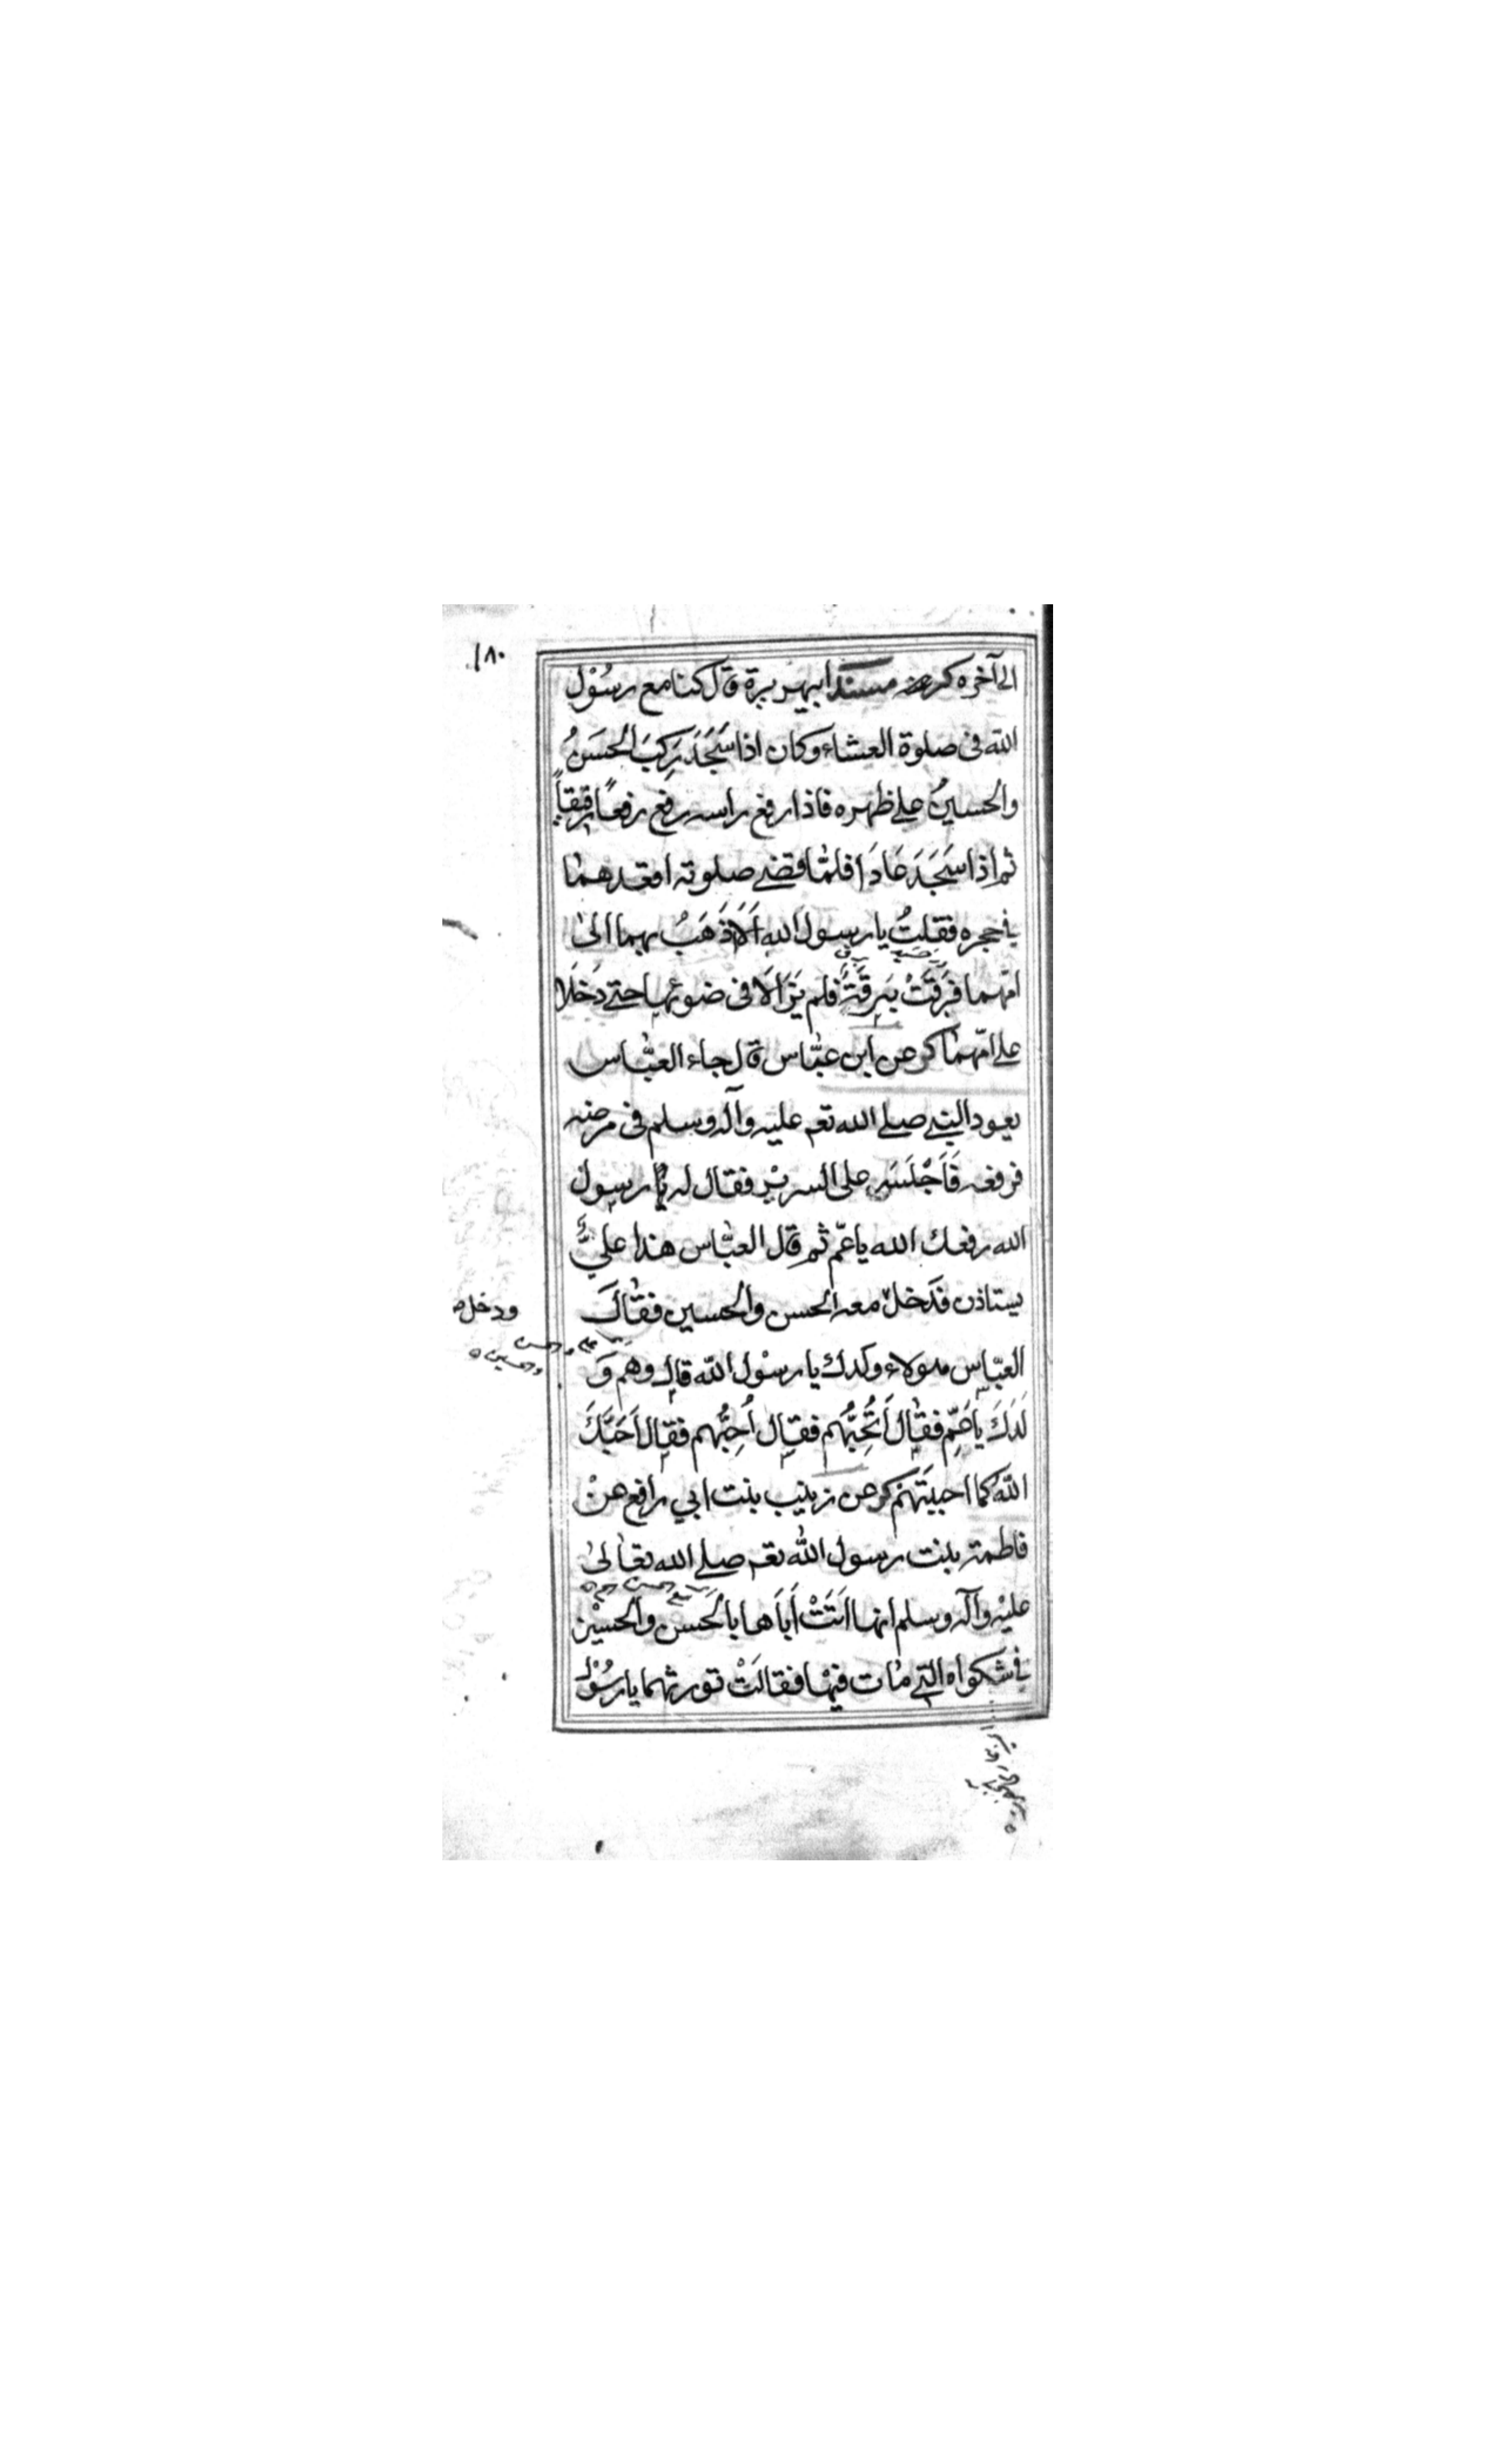 ١٨٠
الى آخره كر مسند ابيهريرة قال كنا مع رسُوْلِ
الله فى صلوة العشاء وكان اذا سَجَدَ رَكِبَ الحسَنُ
والحسينُ على ظهره فاذا رفع راسه رفع رفعًا رقيقاً
ثم اذا سَجَدَ عَادَا فلمّا قضے صلوته اقعدهما
فے حجره فقلتُ يا رسول الله اَلَا اَذْهَبُ بهما الىٰ
امّهما فبَرَقَتْ بَرِقَةٌ فلم يَزَالَا فى ضوئها حتے دَخَلَا
علے امّهما كر عن ابن عبّاس قال جاء العبّاس
يعود النبے صلے الله تعم عليه وآله وسلم فى مرضه
فرفعه فَاَجْلَسَه على السرير فقال له يا رسول
الله رفعك الله يا عمّ ثم قال العبّاس هذا عليٌّ
يستاذن فدخل معه الحسن والحسين فقال
ودخل
العبّاس هولاء ولدك يا رسُوْل الله قال وهم وَ
والحسين
لَدَكَ يا عَمِّ فقال اَتُحِبُّهم فقال اُحِبُّهم فقال اَحَبَّكَ
الله كما احببتَهم كر عن زينب بنت ابي رافع عنْ
فاطمة بنت رسول الله تعم صلے الله تعالىٰ
عليه وآله وسلم انها اَتَتْ اَبَاها بالحَسن والحسيْن
فے شكواه التے مات فيها فقالتْ تورثهما يا رسُوْل